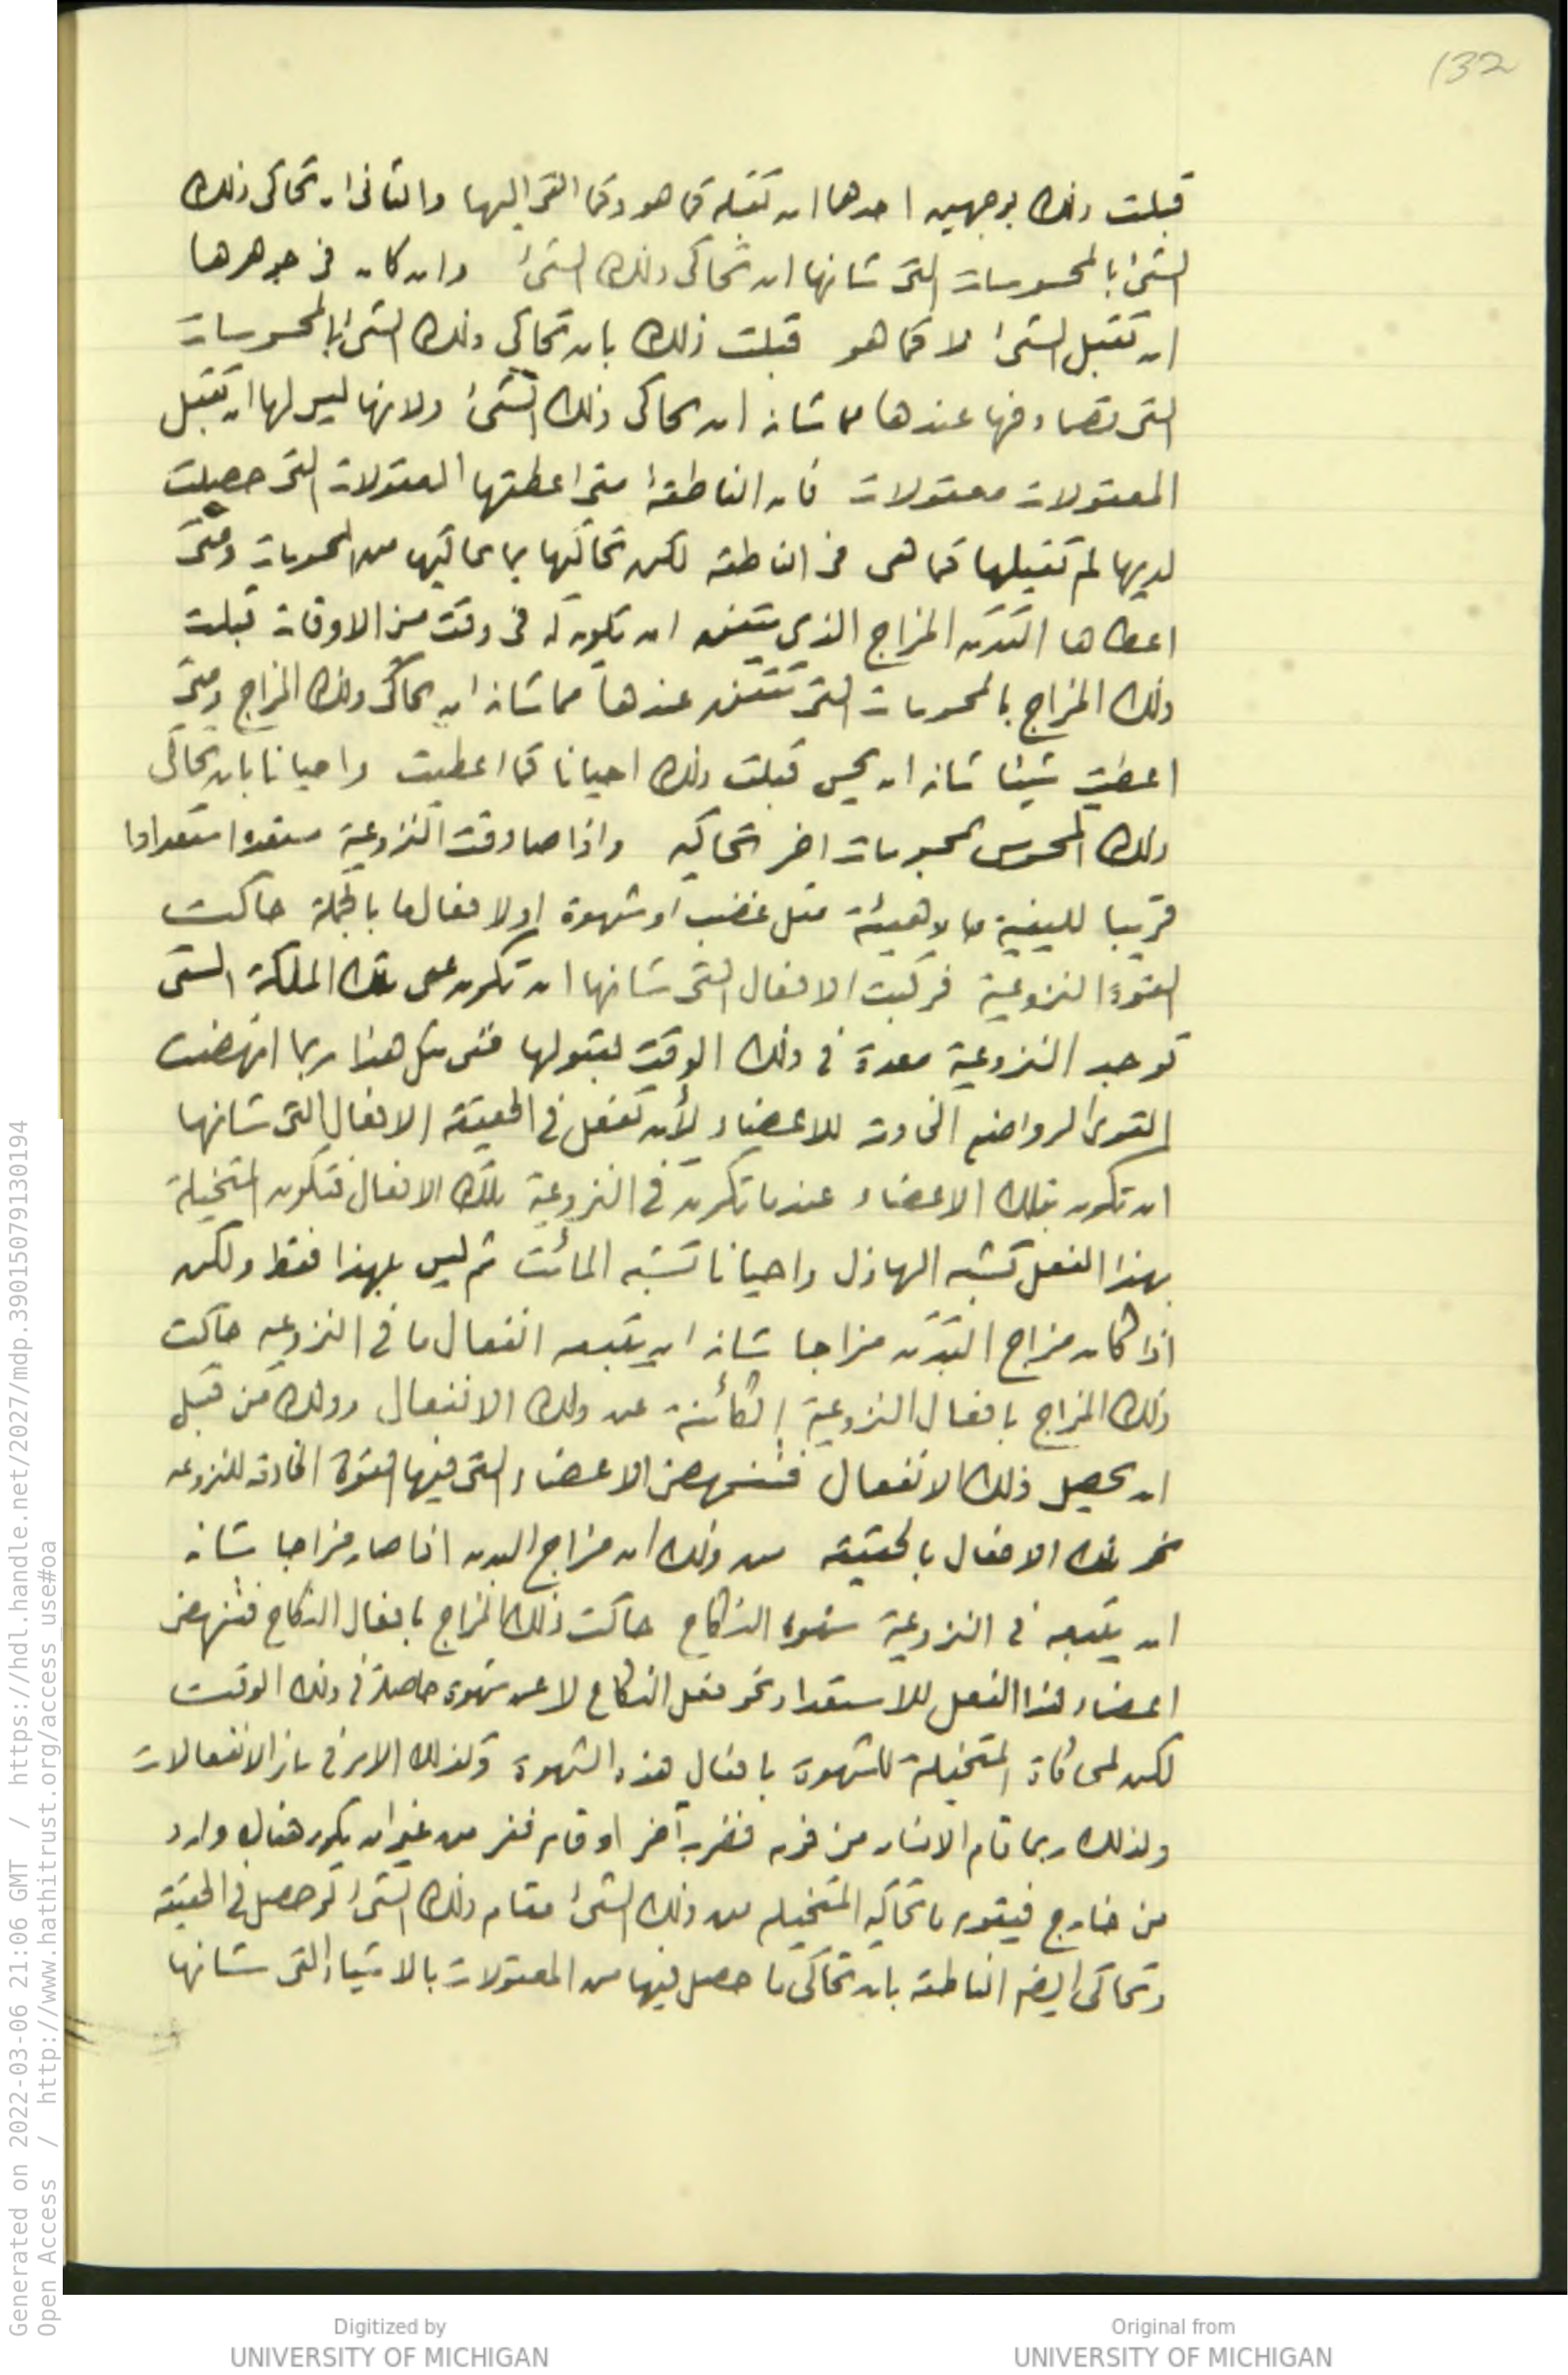 132
قبلت ذلك بوجهين احدهما ان تقبله كما هو وكما القى اليها والثانى ان تحاكى ذلك
الشئ بالمحسوسات التى شانها ان تحاكى ذلك الشئ وان كان فى جوهرها
ان تقبل الشئ لا كما هو قبلت ذلك بان تحاكى ذلك الشئ بالمحسوسات
التى تصادفها عندها مما شانه ان يحاكى ذلك الشئ ولانها ليس لها ان تقبل
المعقولات معقولات فان الناطقة متى اعطتها المعقولات التى حصلت
لديها لم تقبلها كما هى فى الناطقة لكن تحاكيها بما يحاكيها من المحسوسات ومتى
اعطاها البدن المزاج الذى يتفق ان يكون له فى وقت من الاوقات قبلت
ذلك المزاج بالمحسوسات التى تتفق عندها مما شانه ان يحاكى ذلك المزاج ومتى
اعطيت شيئا شانه ان يحس قبلت ذلك احيانا كما اعطيت واحيانا بان تحاكى
ذلك المحسوس بمحسوسات اخر تحاكيه واذا صادفت النزوعية مستعدة استعدادا
قريبا لكيفية ما او هيئة مثل غضب او شهوة او لانفعال ما بالجملة حاكت
القوة النزوعية فركبت الافعال التى شانها ان تكون عن تلك الملكة التى
توجد النزوعية معدة فى ذلك الوقت لقبولها ففى مثل هذا ربما انهضت
القوى الرواضع الخادمة للاعضاء لأن تفعل فى الحقيقة الافعال التى شانها
ان تكون بتلك الاعضاء عندما تكون فى النزوعية تلك الافعال فتكون المتخيلة
بهذا الفعل تشبه الهازل واحيانا تشبه المائت ثم ليس بهذا فقط ولكن
اذا كان مزاج البدن مزاجا شانه ان يتبعه انفعال ما فى النزوعيه حاكت
ذلك المزاج بافعال النزوعية الكائنة عن ذلك الانفعال وذلك من قبل
ان يحصل ذلك الانفعال فتنهض الاعضاء التى فيها القوة الخادمة للنزوعيه
نحو تلك الافعال بالحقيقة من ذلك ان مزاج البدن اذا صار مزاجا شانه
ان يتبعه فى النزوعية شهوة النكاح حاكت ذلك المزاج بافعال النكاح فتنهض
اعضاء هذا الفعل للاستعداد نحو فعل النكاح لا عن شهوة حاصلة فى ذلك الوقت
لكن لمحاكاة المتخيلة للشهوة بافعال هذه الشهوة وكذلك الامر فى سائر الانفعالات
ولذلك ربما قام الانسان من نومه فضرب آخر او قام ففر من غير ان يكون هناك وارد
من خارج فيقوم ما تحاكيه المتخيله من ذلك الشئ مقام ذلك الشئ لو حصل فى الحقيقة
وتحاكى ايضا الناطقة بان تحاكى ما حصل فيها من المعقولات بالاشياء التى شانها
Generated on 2022-03-06 21:06 GMT / https://hdl.handle.net/2027/mdp.39015079130194
Open Access / http://www.hathitrust.org/access_use#oa
Digitized by
UNIVERSITY OF MICHIGAN
Original from
UNIVERSITY OF MICHIGAN